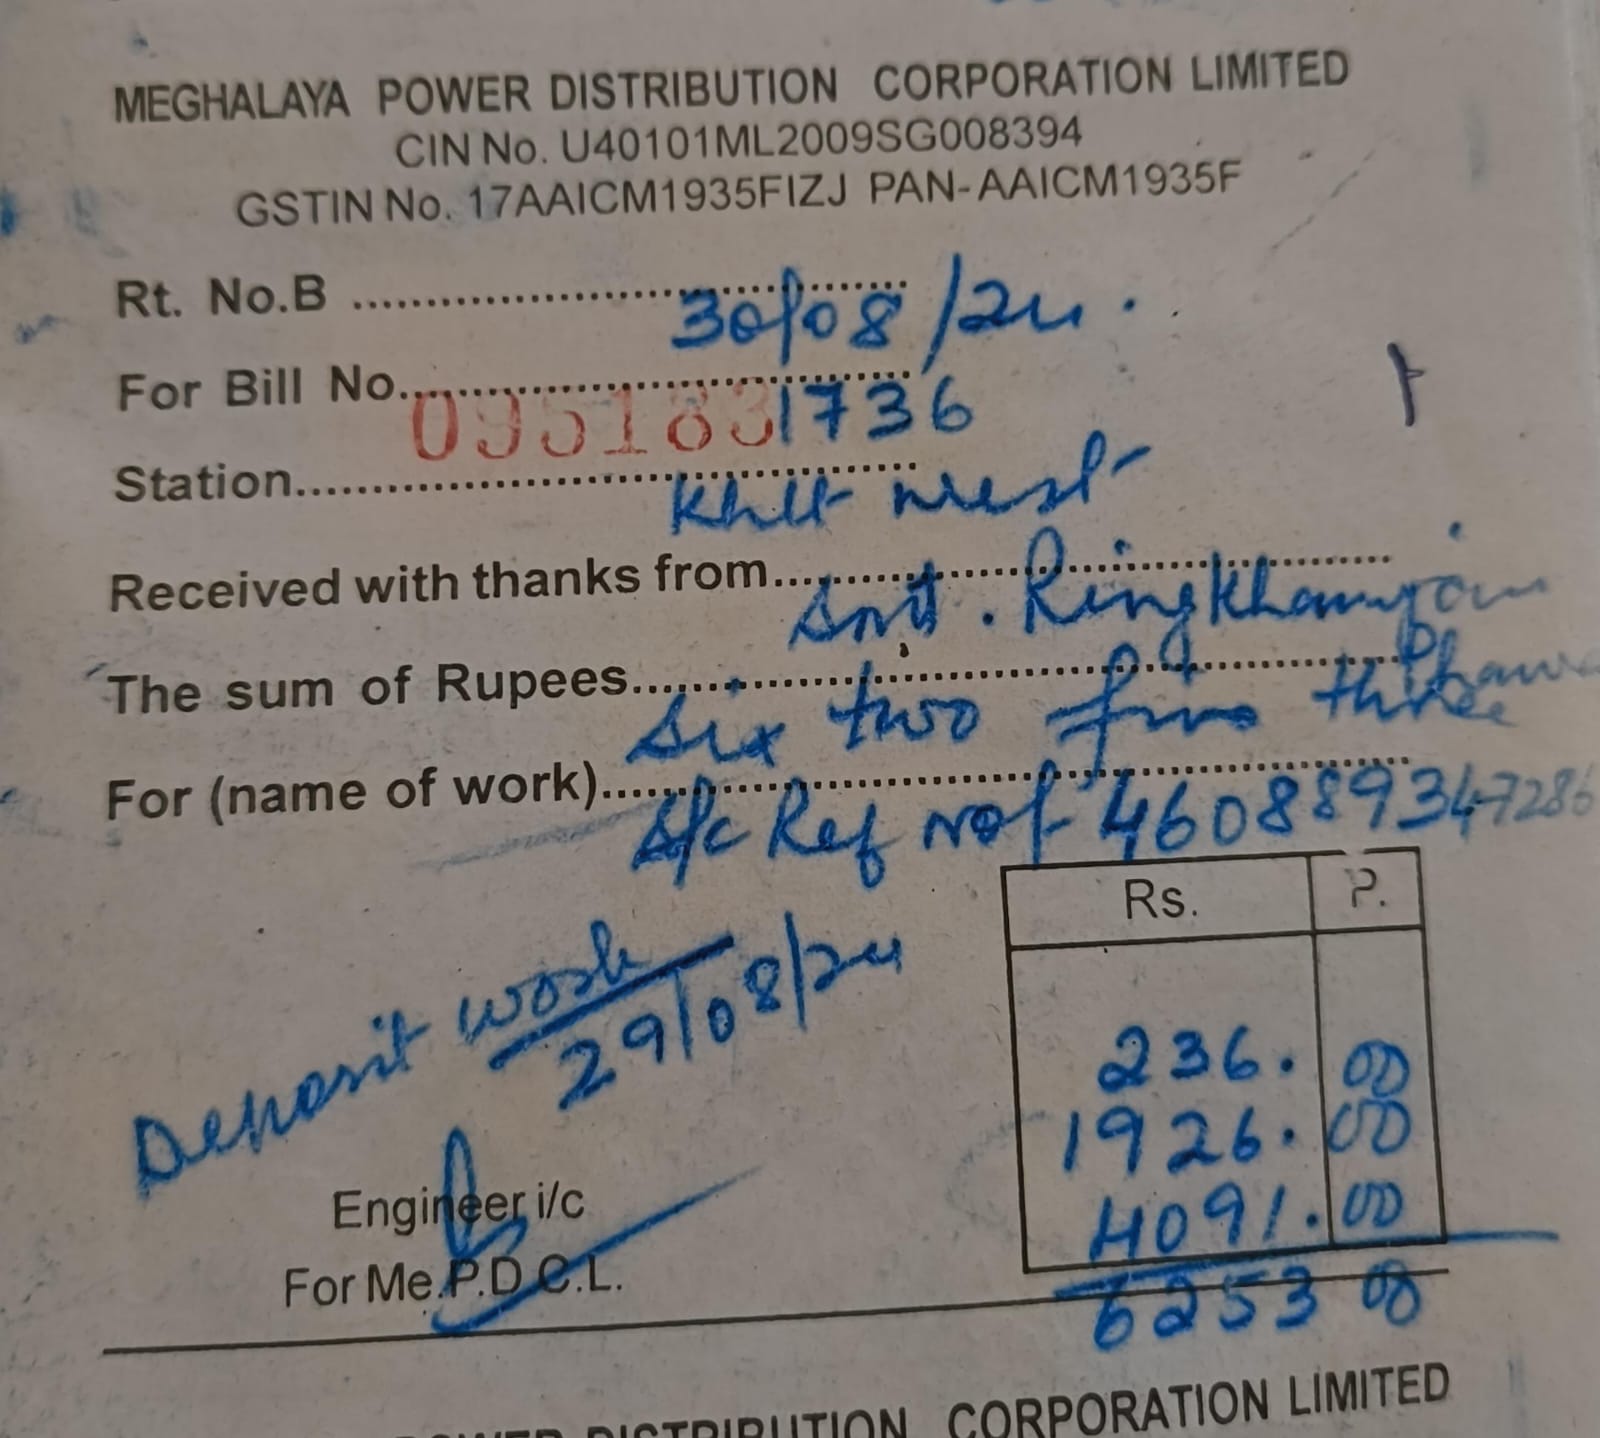 MEGHALAYA POWER DISTRIBUTION CORPORATION LIMITED
CIN No. U40101ML2009SG008394
GSTIN No. 17AAICM1935FIZJ PAN-AAICM1935F
Rt. No.B .......... 30/08/24.
For Bill No.......... 1736
095183
Station.......... Khlt West
Received with thanks from.......... Smti. Ringkhamyom
The sum of Rupees.......... Six two five three
For (name of work).......... S/c Ref No 460889347286
Rs. P.
Deposit work
29/08/24
236. 00
1926. 00
4091. 00
6253 00
Engineer i/c
For Me.P.D.C.L.
POWER DISTRIBUTION CORPORATION LIMITED